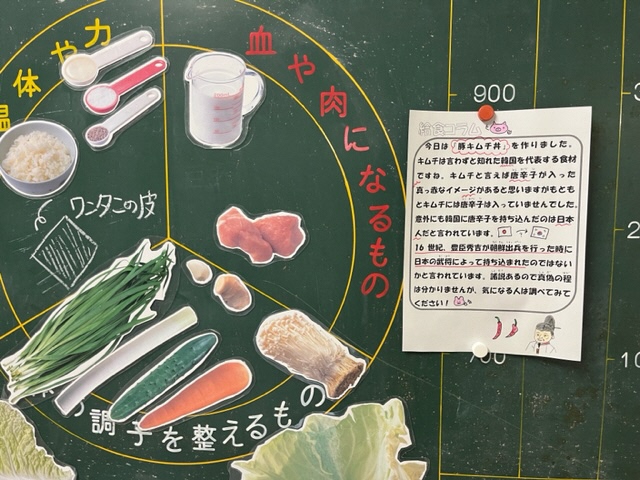 体や力
温
血や肉になるもの
ワンタンの皮
の調子を整えるもの
900
700
給食コラム
今日は「豚キムチ丼」を作りました。
キムチは言わずと知れた韓国を代表する食材
ですね。キムチと言えば唐辛子が入った
真っ赤なイメージがあると思いますがもとも
とキムチには唐辛子は入っていませんでした。
意外にも韓国に唐辛子を持ち込んだのは日本
人だと言われています。
16世紀、豊臣秀吉が朝鮮出兵を行った時に
日本の武将によって持ち込まれたのではない
かと言われています。諸説あるので真偽の程
は分かりませんが、気になる人は調べてみて
ください！